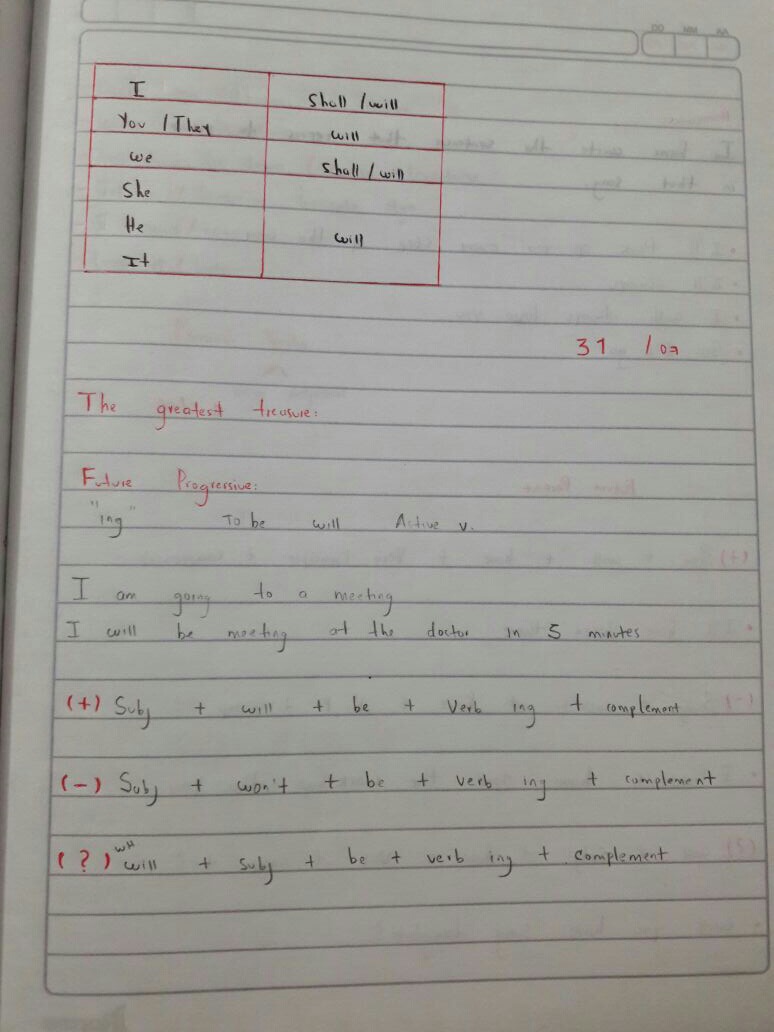 I shall / will
You / They will
we shall / will
She
He will
It
31 / 07
The greatest treasure:
Future Progressive:
"ing" To be will Active v.
I am going to a meeting
I will be meeting at the doctor in 5 minutes
(+) Subj + will + be + Verb ing + complement
(-) Subj + won't + be + verb ing + complement
WH
(?) will + subj + be + verb ing + complement